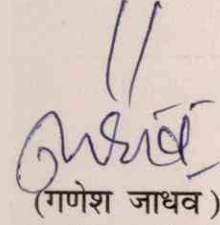 (गणेश जाधव)